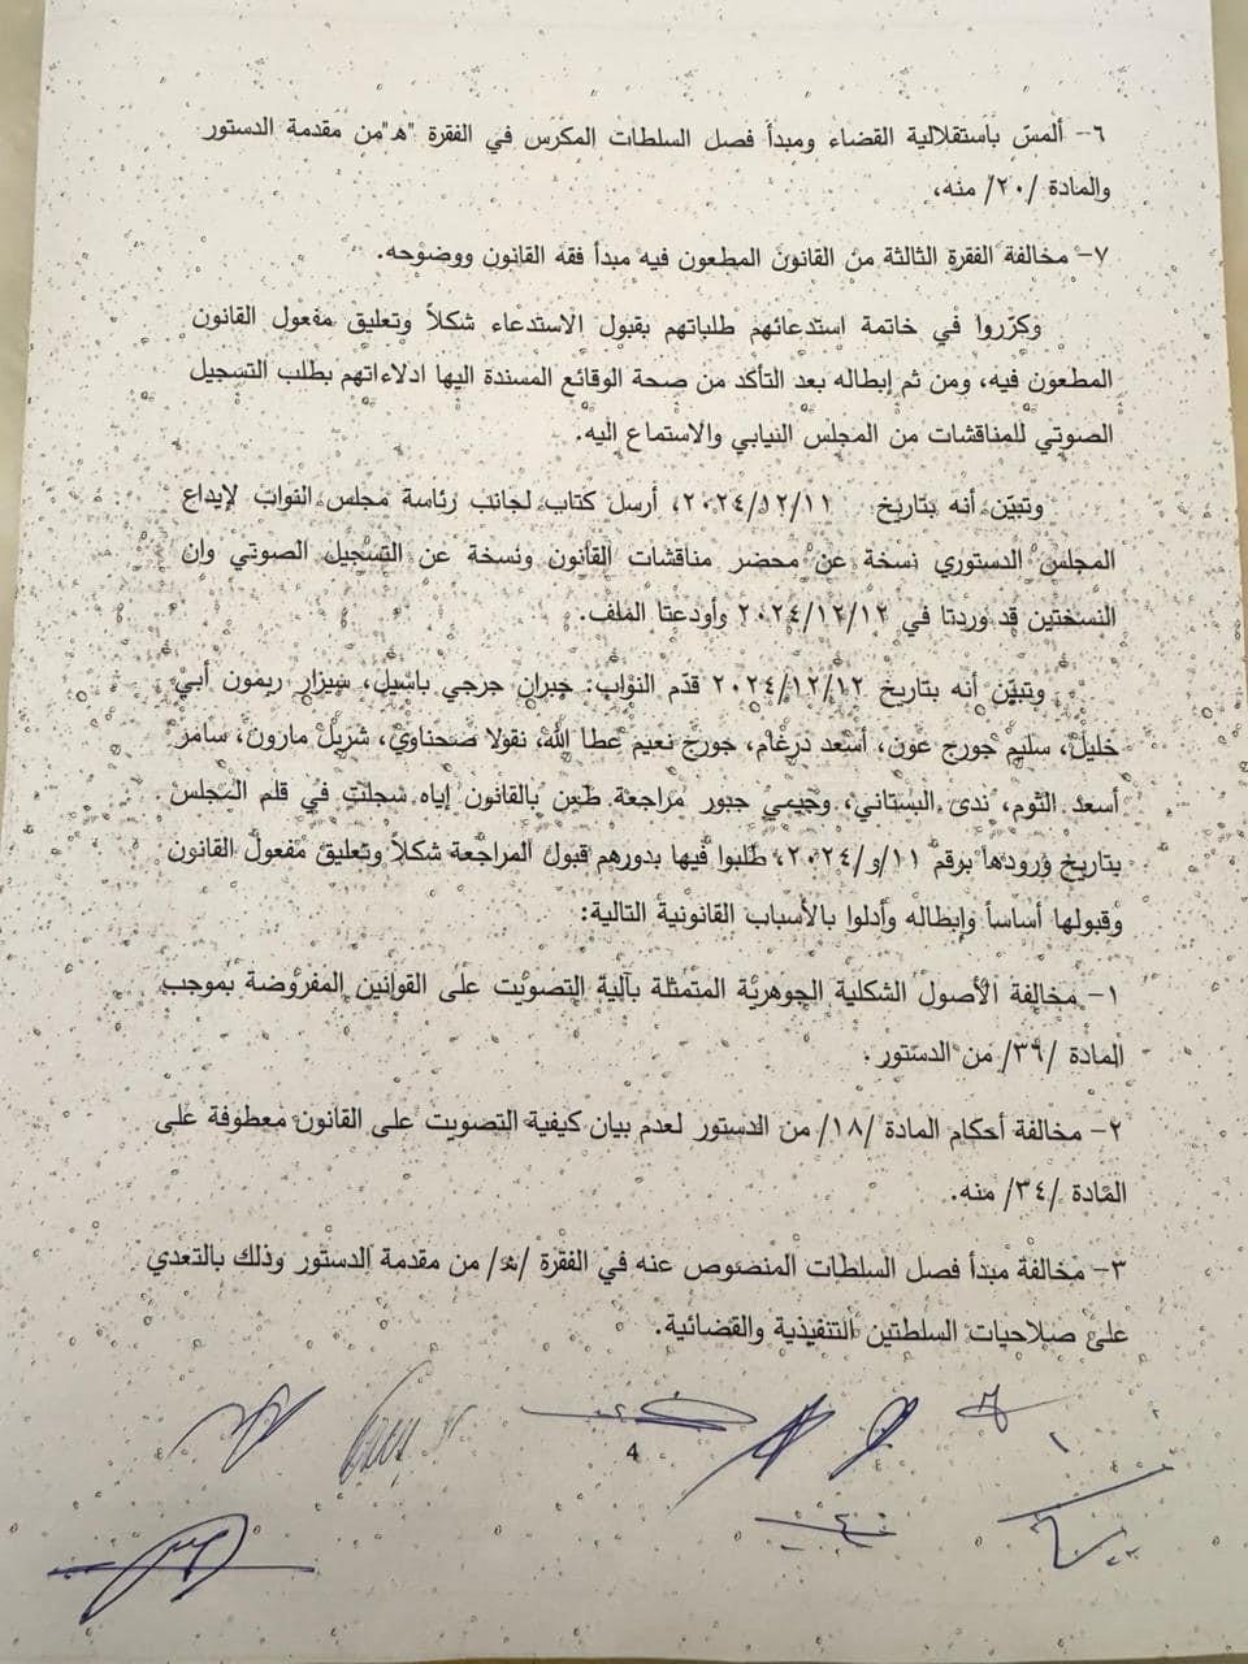 ٦- ألمسّ باستقلالية القضاء ومبدأ فصل السلطات المكرّس في الفقرة "هـ"من مقدمة الدستور
والمادة /٢٠/ منه،
٧- مخالفة الفقرة الثالثة من القانون المطعون فيه مبدأ فقه القانون ووضوحه.
وكرّروا في خاتمة استدعائهم طلباتهم بقبول الاستدعاء شكلاً وتعليق مفعول القانون
المطعون فيه، ومن ثم إبطاله بعد التأكد من صحة الوقائع المسندة اليها ادلاءاتهم بطلب التسجيل
الصوتي للمناقشات من المجلس النيابي والاستماع اليه.
وتبيّن أنه بتاريخ ٢٠٢٤/١٢/١١، أرسل كتاب لجانب رئاسة مجلس النواب لإيداع
المجلس الدستوري نسخة عن محضر مناقشات القانون ونسخة عن التسجيل الصوتي وان
النسختين قد وردتا في ٢٠٢٤/١٢/١٢ وأودعتا الملف.
وتبيّن أنه بتاريخ ٢٠٢٤/١٢/١٢ قدّم النواب: جبران جرجي باسيل، سيزار ريمون أبي
خليل، سليم جورج عون، أسعد درغام، جورج نعيم عطا الله، نقولا صحناوي، شربل مارون، سامر
أسعد التوم، ندى البستاني، وجيمي جبور مراجعة طعن بالقانون إياه سجلت في قلم المجلس
بتاريخ ورودها برقم ١١/و/٢٠٢٤، طلبوا فيها بدورهم قبول المراجعة شكلاً وتعليق مفعول القانون
وقبولها أساساً وإبطاله وأدلوا بالأسباب القانونية التالية:
١- مخالفة الأصول الشكلية الجوهرية المتمثلة بآلية التصويت على القوانين المفروضة بموجب
المادة /٣٦/ من الدستور.
٢- مخالفة أحكام المادة /١٨/ من الدستور لعدم بيان كيفية التصويت على القانون معطوفة على
المادة /٣٤/ منه.
٣- مخالفة مبدأ فصل السلطات المنصوص عنه في الفقرة /هـ/ من مقدمة الدستور وذلك بالتعدي
على صلاحيات السلطتين التنفيذية والقضائية.
4